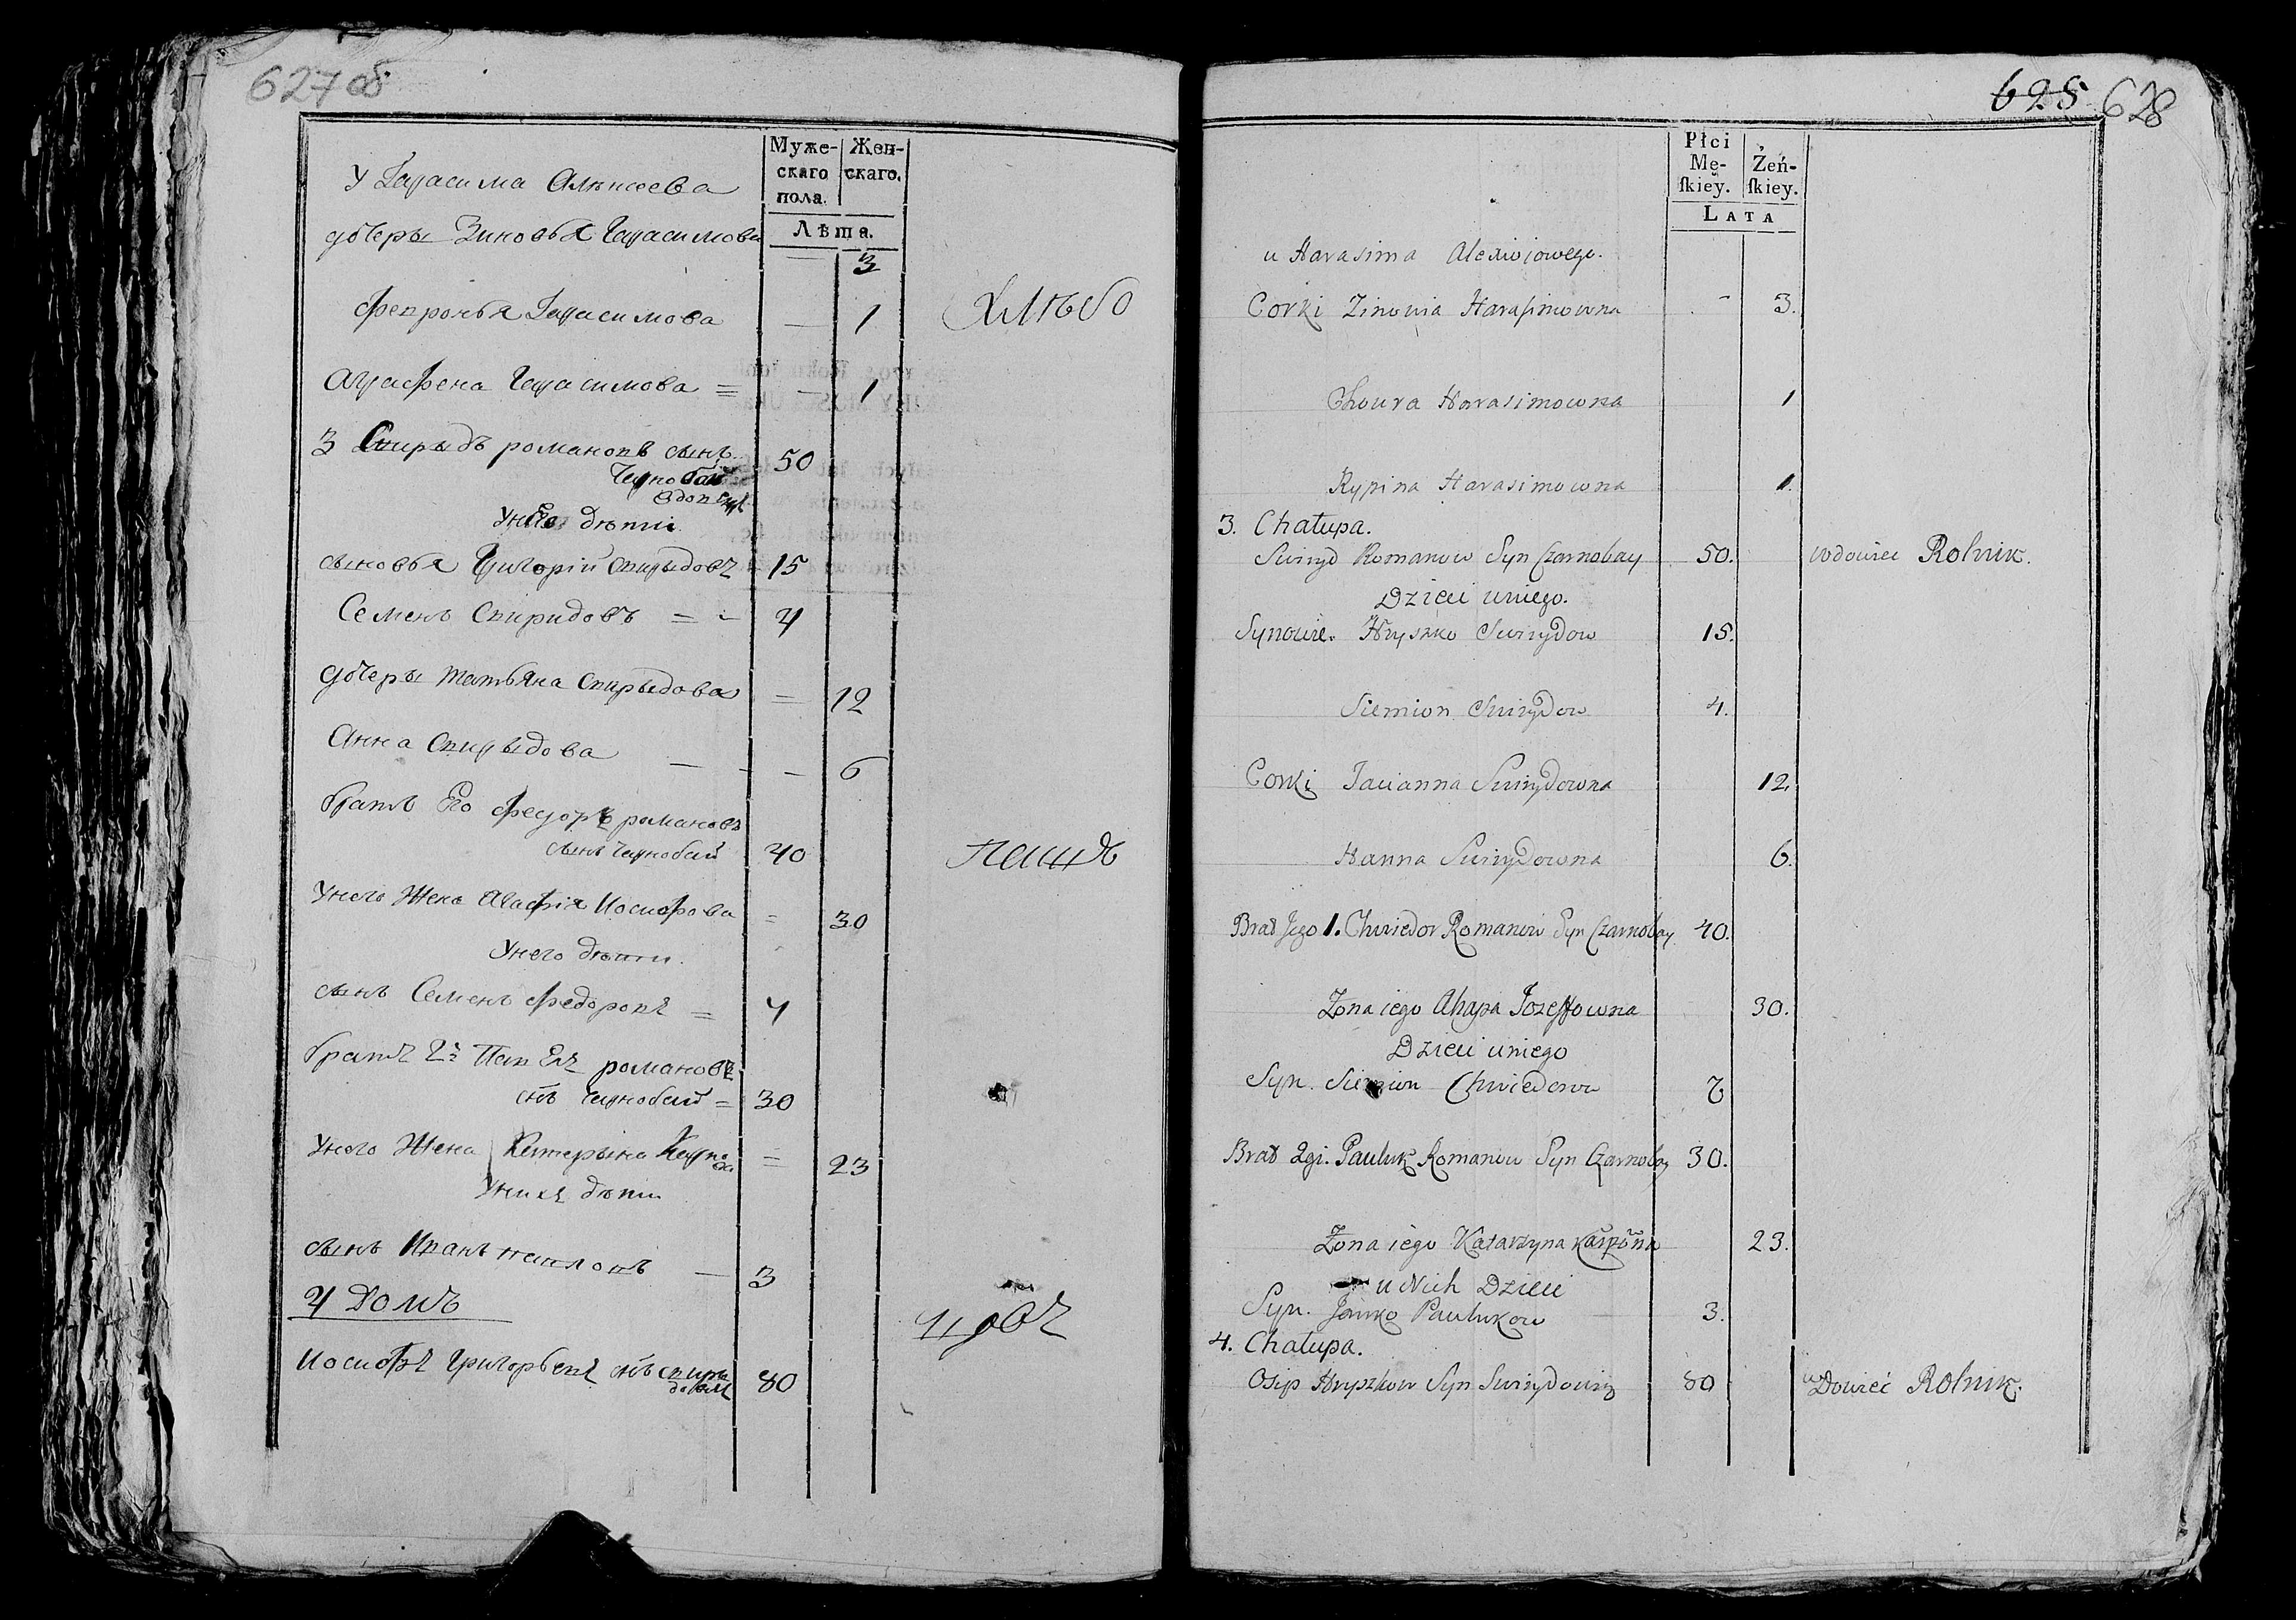 627 об
Муже-
скаго
пола.
Жен-
скаго.
Лѣта.
У Гарасима Алексеева
дочеры Зиновья Гарасимова — 3
Февронья Гарасимова — 1
Аграфена Гарасимова = — 1
3 Спирыдъ романовъ сынъ 50
Чернобай
вдовецъ
У него дѣти
сыновья Григорій Спирыдовъ 15
Семенъ Спиридовъ = - 4
дочеры татьяна Спирыдова = 12
Анна Спирыдова — - - 6
братъ Его Федоръ романовъ
сынъ Чернобай 40
У него Жена Агафія Иосифова = 30
У него дѣти.
сынъ Семенъ Федоровъ = 4
братъ 2й Павелъ романовъ
снъ Чернобай = 30
У него Жена Катерына Карпова = 23
У нихъ дѣти
сынъ Иванъ павловъ — 3
4 Домъ
Иосифъ Григорьевъ снъ спиридовъ 80
Хлѣбо
пашѣ
цовъ
628 628
Płci
Mę-
ſkiey.
Żeń-
ſkiey.
LATA
u Harasima Alexiejowego.
Corki Zinowia Haraſimowna - 3.
Chowra Harasimowna 1
Rypina Harasimowna 1.
3. Chałupa.
Swiryd Romanow Syn Czarnobay 50. wdowiec Rolnik.
Dzieci uniego.
Synowie. Hryszko Swirydow 15.
Siemion Swirydow 4.
Corki Tacianna Swirydowna 12.
Hanna Swirydowna 6.
Brat Jego 1. Chwiedor Romanow Syn Czarnobay 40.
Żona iego Ahapa Jozeffowna 30.
Dzieci uniego
Syn. Siemion Chwiedorow
Brat 2gi. Pauluk Romanow Syn Czarnobay 30.
Żona iego Katarzyna Karpowna 23.
u Nich Dzieci
Syn. Janko Paulukow 3.
4. Chałupa.
Osip Hryszkow Syn Swirydowicz 80 wDowieć Rolnik.